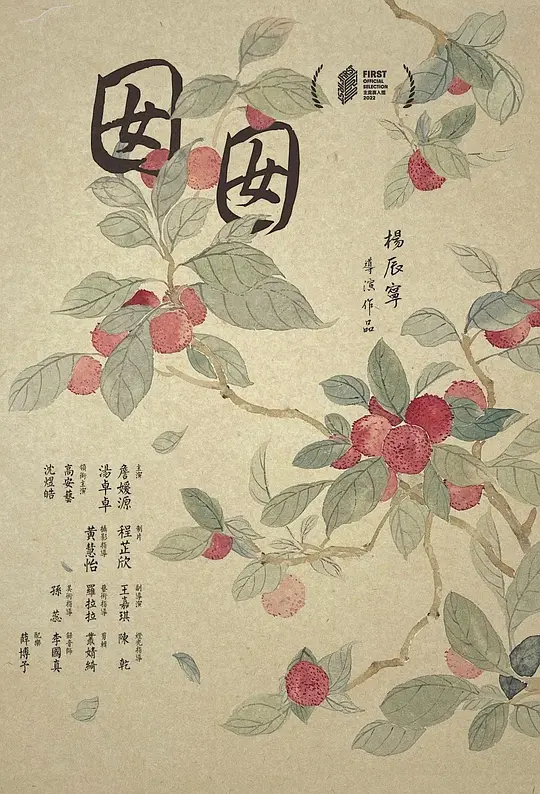 囡囡
FIRST
OFFICIAL
SELECTION
2022
楊辰寧
導演作品
主演
詹媛源
湯卓卓
領銜主演
高安藝
沈煜皓
制片
程芷欣
攝影指導
黃慧怡
副導演
王嘉琪
藝術指導
羅拉拉
美術指導
孫蕊
燈光指導
陳乾
剪輯
婧綺
錄音師
李國真
配樂
薛博予